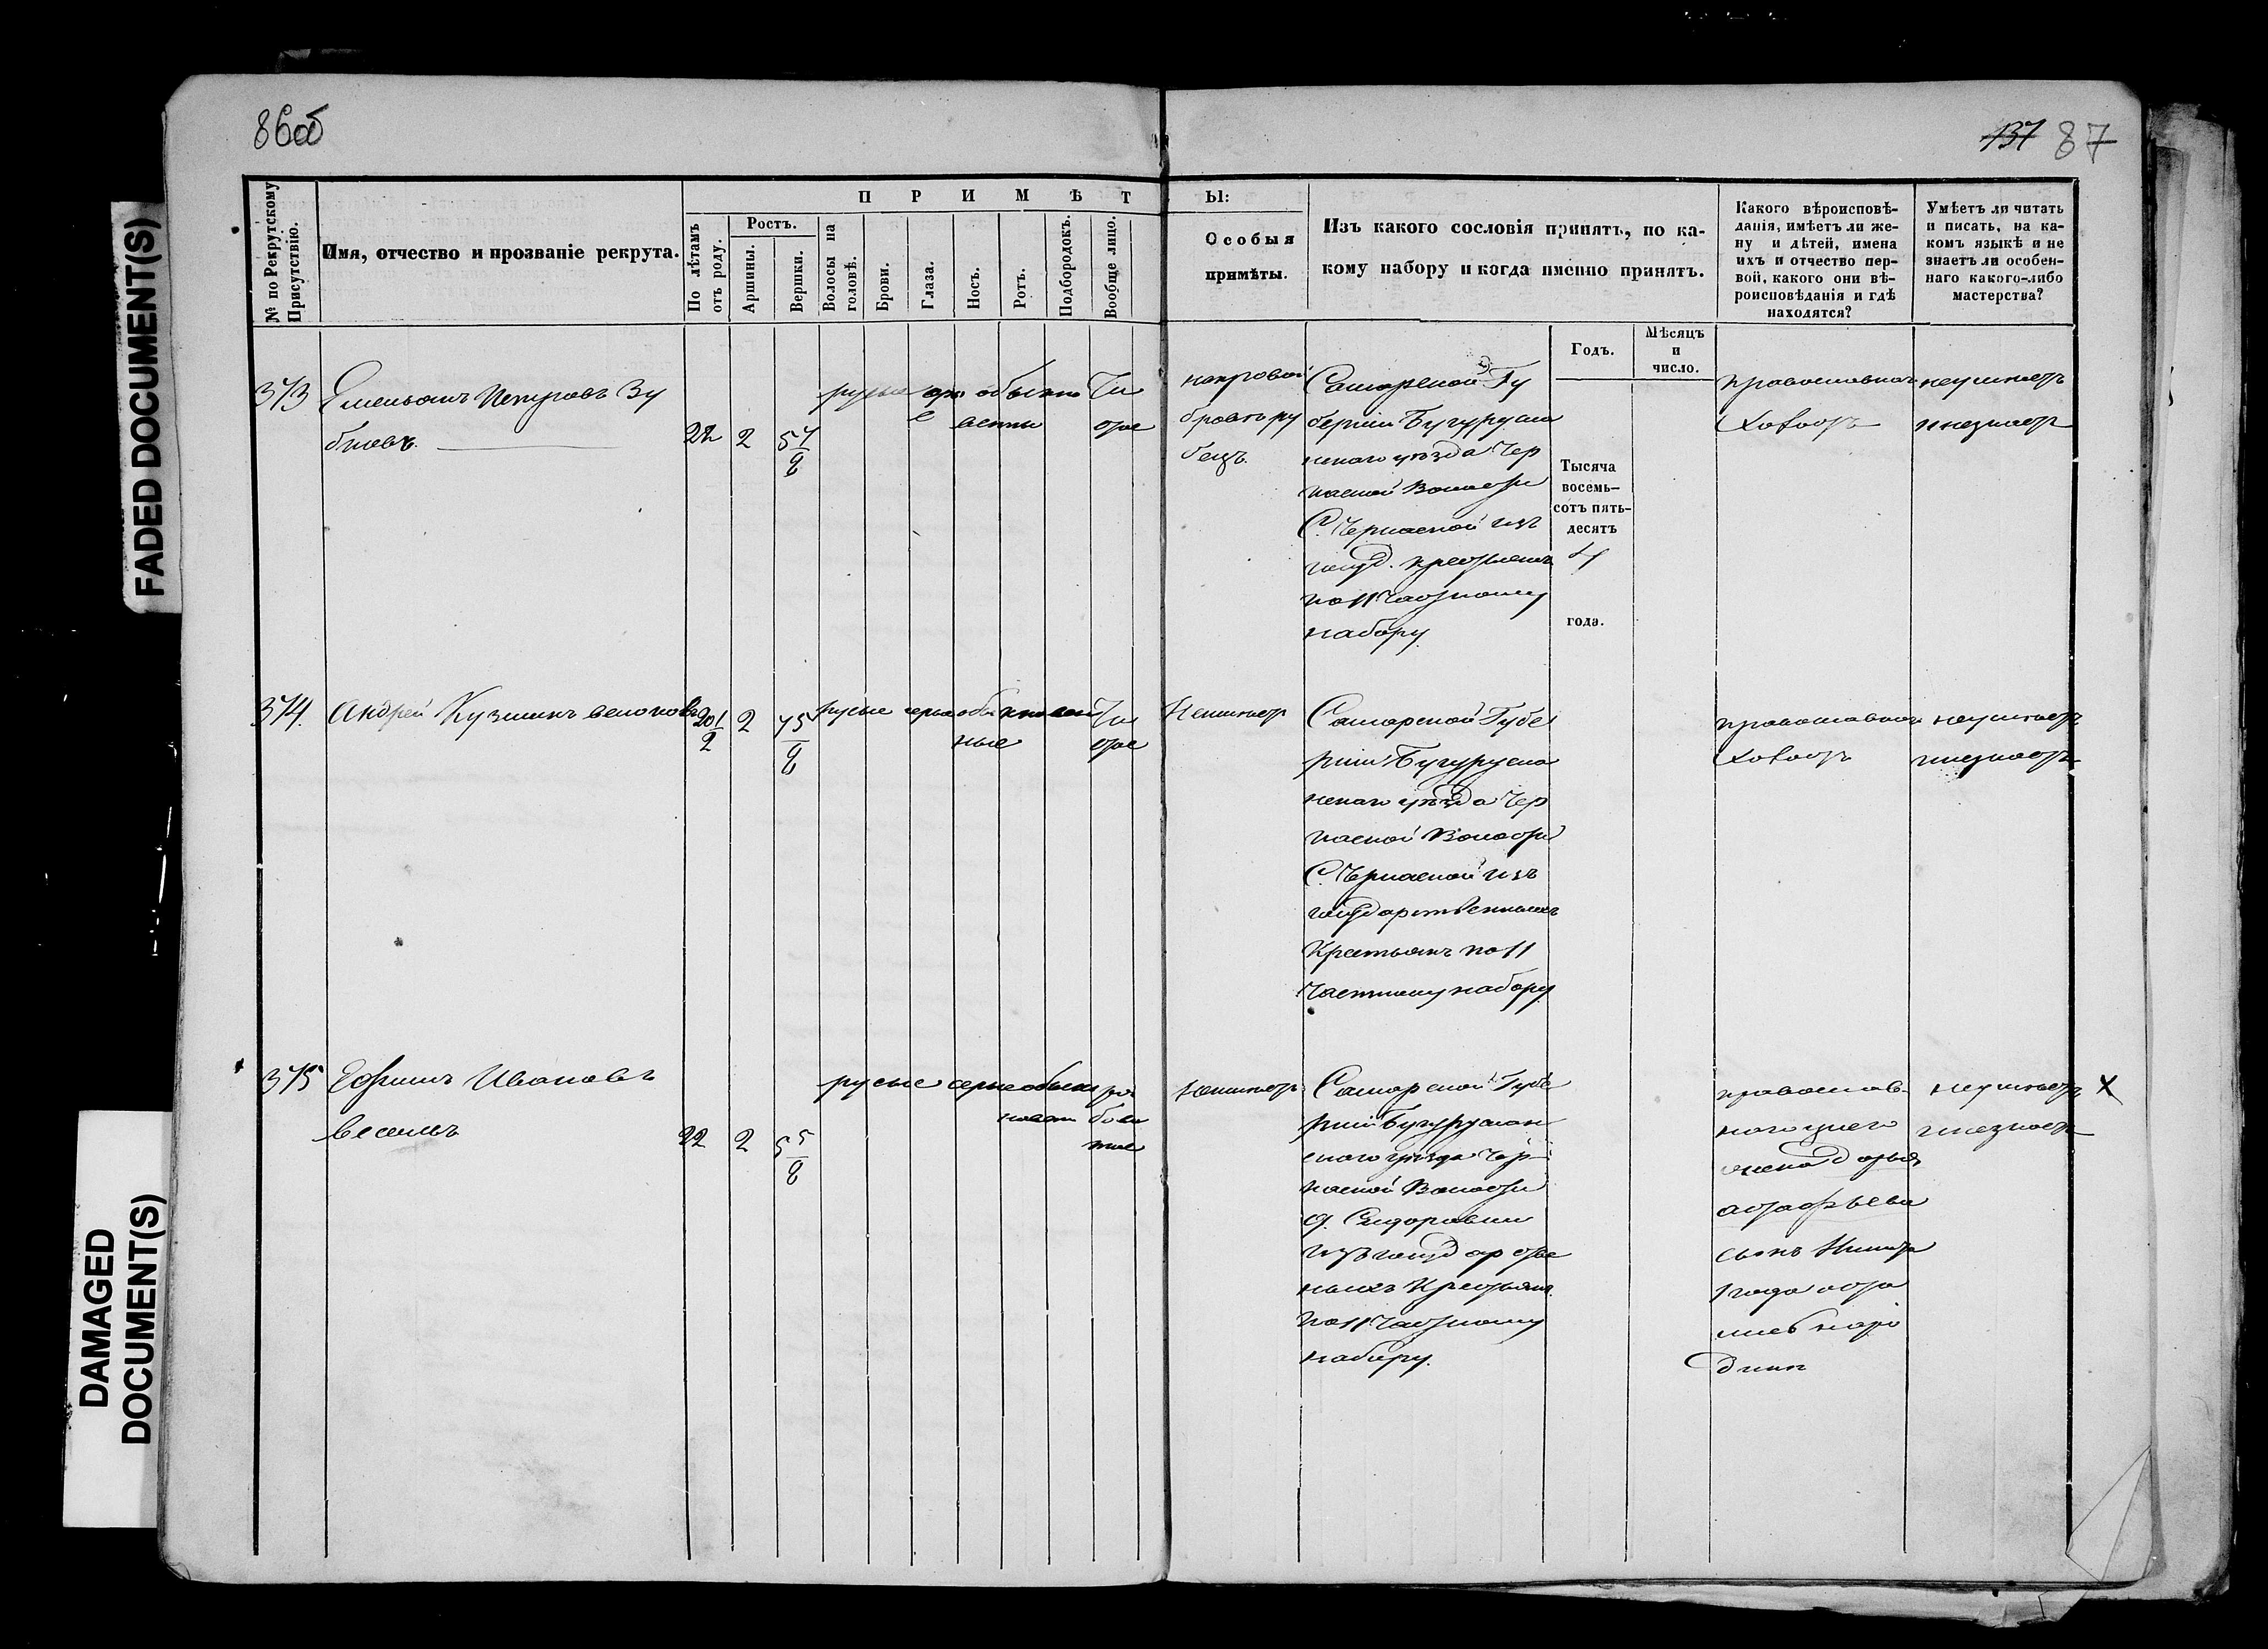 86об
137 87
FADED DOCUMENT(S)
DAMAGED
DOCUMENT(S)
№ по Рекрутскому
Присутствію.
Имя, отчество и прозваніе рекрута.
ПРИМѢТЫ:
По лѣтамъ
отъ роду.
Ростъ.
Аршины.
Вершки.
Волосы на
головѣ.
Брови.
Глаза.
Носъ.
Ротъ.
Подбородокъ.
Вообще лицо.
Особыя
примѣты.
Изъ какого сословія принятъ, по ка-
кому набору и когда именно принятъ.
Какого вѣроисповѣ-
данія, имѣетъ ли же-
ну и дѣтей, имена
ихъ и отчество пер-
вой, какого они вѣ-
роисповѣданія и гдѣ
находятся?
Умѣетъ ли читать
и писать, на ка-
комъ языкѣ и не
знаетъ ли особен-
наго какого-либо
мастерства?
Годъ.
Мѣсяцъ
и
число.
373
Емельянъ Петровъ Зу
бковъ.
22
2
5 4/8
русые
обыкно
венны
Чи
стое
направой
брови ру
бецъ.
Самарской Гу
берніи Бугурусла
нскаго уѣзда Чер
касской Волости
С. Черкаской изъ
госуд. крестьянъ
по 11 Частному
набору
Тысяча
восемь-
сотъ пять-
десятъ
4
года.
православнаго
холостъ
неумѣетъ
и незнаетъ
374.
Андрей Кузминъ
20 1/2
2
4 5/8
русые серые обыкновен
ные
Чи
стое
Неимѣетъ
Самарской Губе
рніи Бугурусла
нскаго уѣзда Чер
каской Волости
С. Черкаской изъ
государственныхъ
Крестьянъ по 11
Частному набору
православнаго
холостъ
неумѣетъ
инезнаетъ
375
Ефимъ Ивановъ
22
2
5 5/8
русые серые обыкн
новен
ря
бова
тое
Неимѣетъ
Самарской Губе
рніи Бугуруслан
скаго уѣзда Чер
каской Волости
д. Сидоровки
изъ государстве
ныхъ Крестьянъ
по 11 Частному
набору.
православ
наго унего
жена Дарья
сынъ Никита
1 года оста
лись народ
динѣ
неумѣетъ
инезнаетъ
X